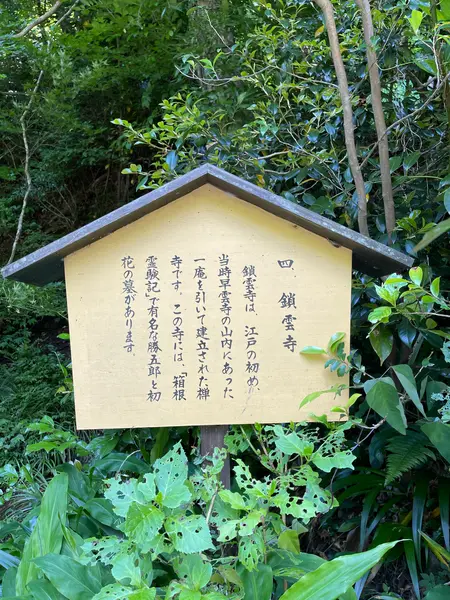 四、鎖雲寺
鎖雲寺は、江戸の初め、
当時早雲寺の山内にあった
一庵を引いて建立された禅
寺です。この寺には、「箱根
霊験記」で有名な勝五郎と初
花の墓があります。